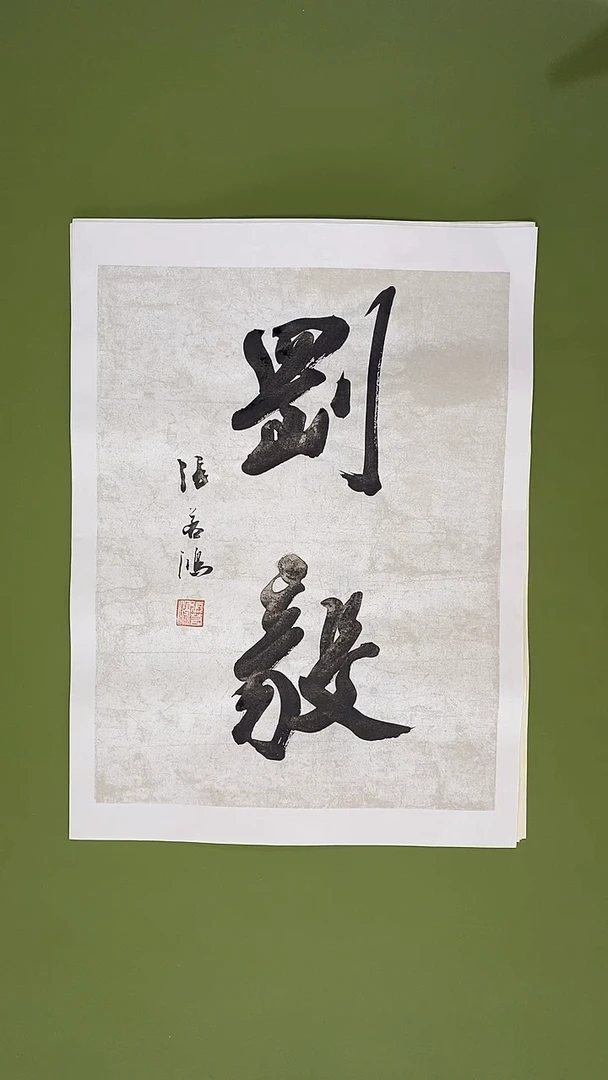 剛毅
張若鴻